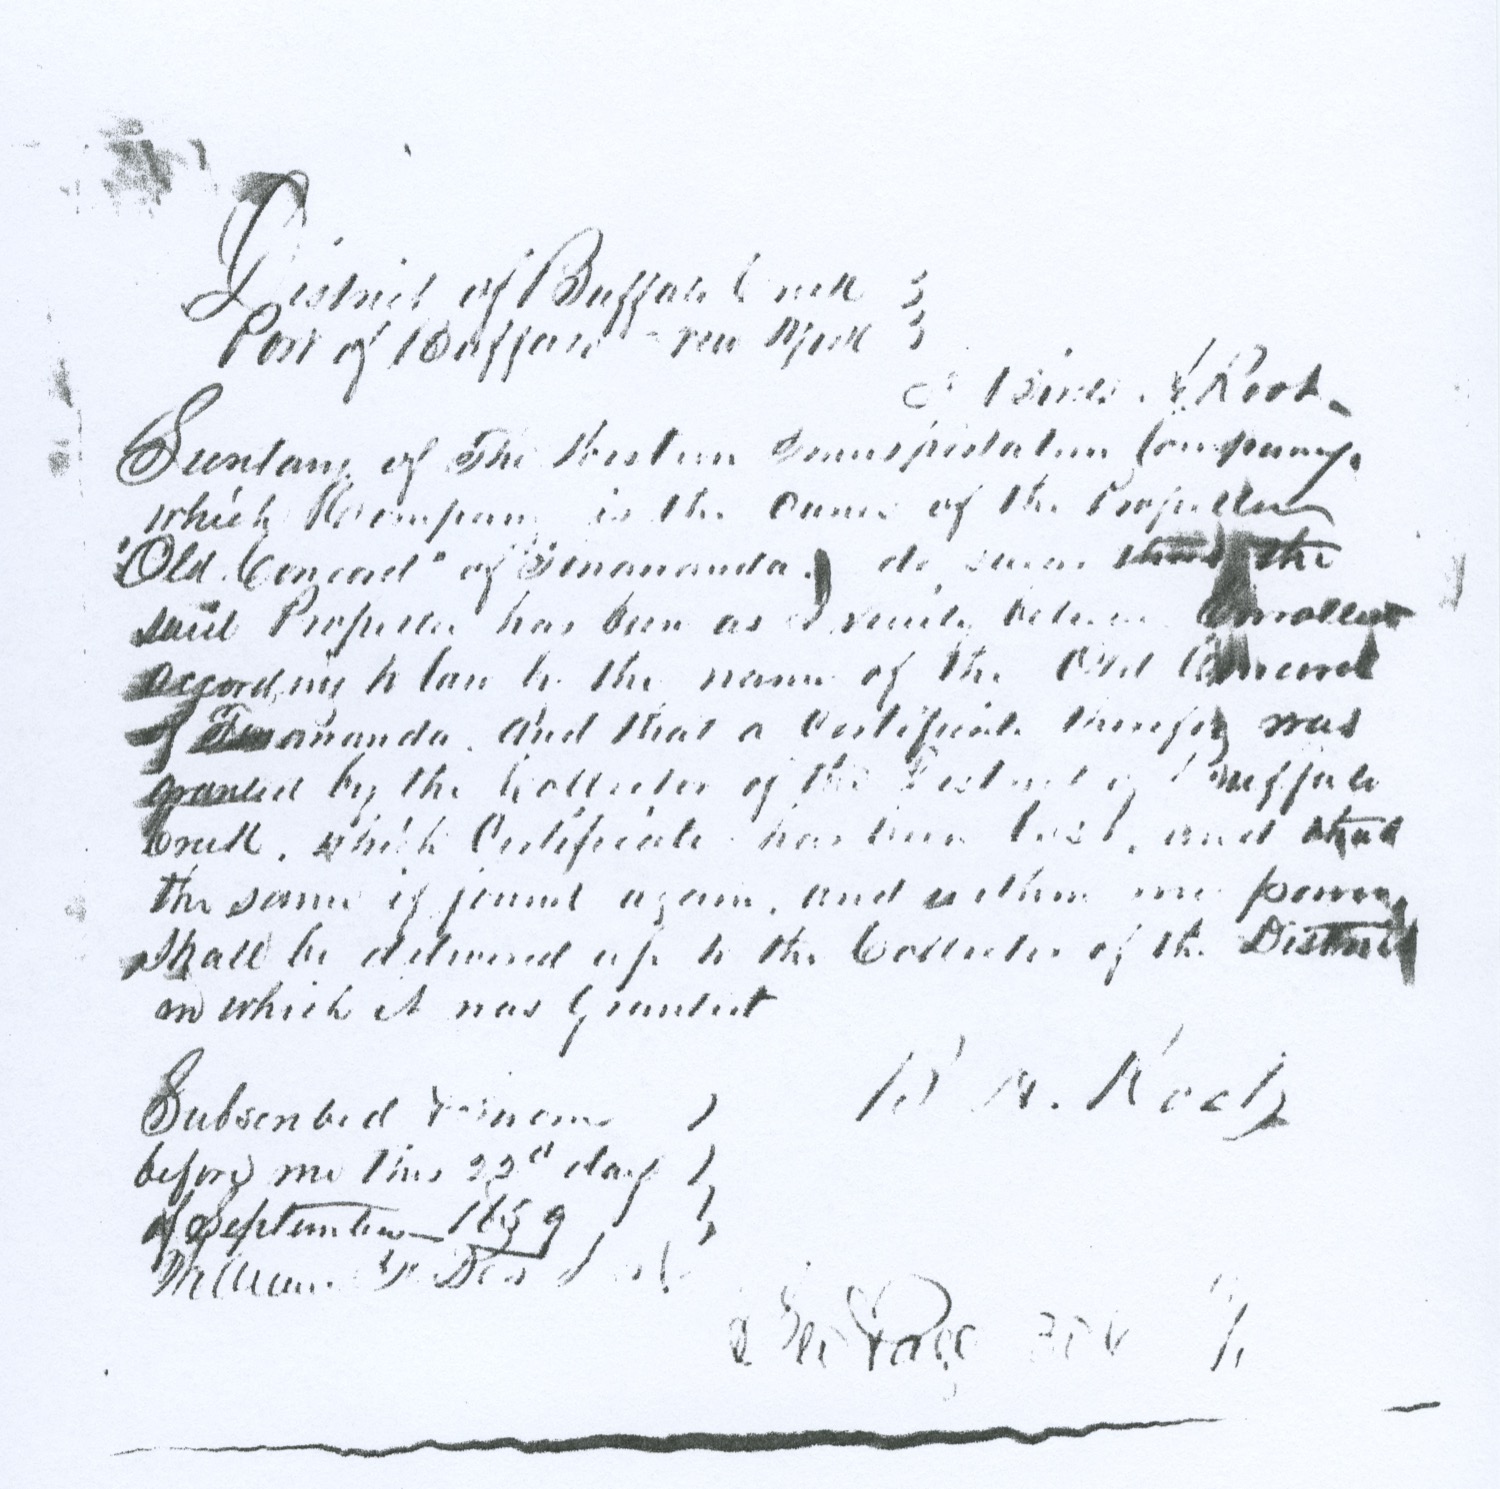 District of Buffalo Creek }
Port of Buffalo - New York }
I A. Root
Secretary of The Western Transportation Company,
which Company is the Owner of the Propeller
"Old Concord" of Tonawanda. do swear that the
said Propeller has been as I verily believe Enrolled
according to law by the name of the Old Concord
of Tonawanda. And that a Certificate thereof was
granted by the Collector of the District of Buffalo
Creek, which Certificate has been lost, and that
the same if found again, and within my power,
Shall be delivered up to the Collector of the District
in which it was Granted
Subscribed & Sworn }
before me this 22d day }
of September 1859 }
William
A. Root
See Page